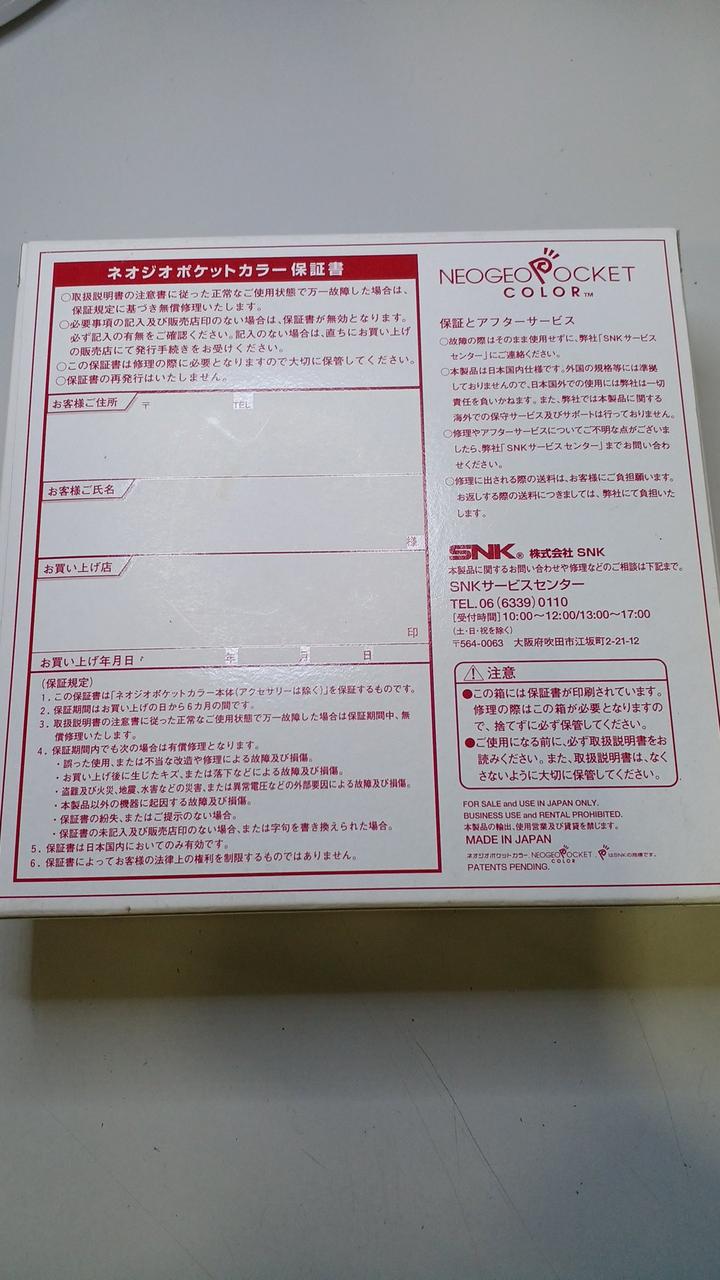 ネオジオポケットカラー保証書
○取扱説明書の注意書に従った正常なご使用状態で万一故障した場合は、
保証規定に基づき無償修理いたします。
○必要事項の記入及び販売店印のない場合は、保証書が無効となります。
必ず記入の有無をご確認ください。記入のない場合は、直ちにお買い上げ
の販売店にて発行手続きをお受けください。
○この保証書は修理の際に必要となりますので大切に保管してください。
○保証書の再発行はいたしません。
お客様ご住所 〒 TEL
お客様ご氏名
様
お買い上げ店
印
お買い上げ年月日 年 月 日
(保証規定)
1. この保証書は「ネオジオポケットカラー本体(アクセサリーは除く)」を保証するものです。
2. 保証期間はお買い上げの日から6カ月の間です。
3. 取扱説明書の注意書に従った正常なご使用状態で万一故障した場合は保証期間中、無
償修理いたします。
4. 保証期間内でも次の場合は有償修理となります。
・誤った使用、または不当な改造や修理による故障及び損傷。
・お買い上げ後に生じたキズ、または落下などによる故障及び損傷。
・盗難及び火災、地震、水害などの災害、または異常電圧などの外部要因による故障及び損傷。
・本製品以外の機器に起因する故障及び損傷。
・保証書の紛失、またはご提示のない場合。
・保証書の未記入及び販売店印のない場合、または字句を書き換えられた場合。
5. 保証書は日本国内においてのみ有効です。
6. 保証書によってお客様の法律上の権利を制限するものではありません。
NEOGEO POCKET
COLOR™
保証とアフターサービス
○故障の際はそのまま使用せずに、弊社「SNKサービス
センター」にご連絡ください。
○本製品は日本国内仕様です。外国の規格等には準拠
しておりませんので、日本国外での使用には弊社は一切
責任を負いかねます。また、弊社では本製品に関する
海外での保守サービス及びサポートは行っておりません。
○修理やアフターサービスについてご不明な点がございま
したら、弊社「SNKサービスセンター」までお問い合わ
せください。
○修理に出される際の送料は、お客様にご負担願います。
お返しする際の送料につきましては、弊社にて負担いた
します。
SNK® 株式会社 SNK
本製品に関するお問い合わせや修理などのご相談は下記まで。
SNKサービスセンター
TEL.06(6339)0110
[受付時間]10:00〜12:00/13:00〜17:00
(土・日・祝を除く)
〒564-0063 大阪府吹田市江坂町2-21-12
⚠注意
●この箱には保証書が印刷されています。
修理の際はこの箱が必要となりますの
で、捨てずに必ず保管してください。
●ご使用になる前に、必ず取扱説明書をお
読みください。また、取扱説明書は、なく
さないように大切に保管してください。
FOR SALE and USE IN JAPAN ONLY.
BUSINESS USE and RENTAL PROHIBITED.
本製品の輸出、使用営業及び賃貸を禁じます。
MADE IN JAPAN
ネオジオポケットカラー、NEOGEO POCKET COLOR、PはSNKの商標です。
PATENTS PENDING.